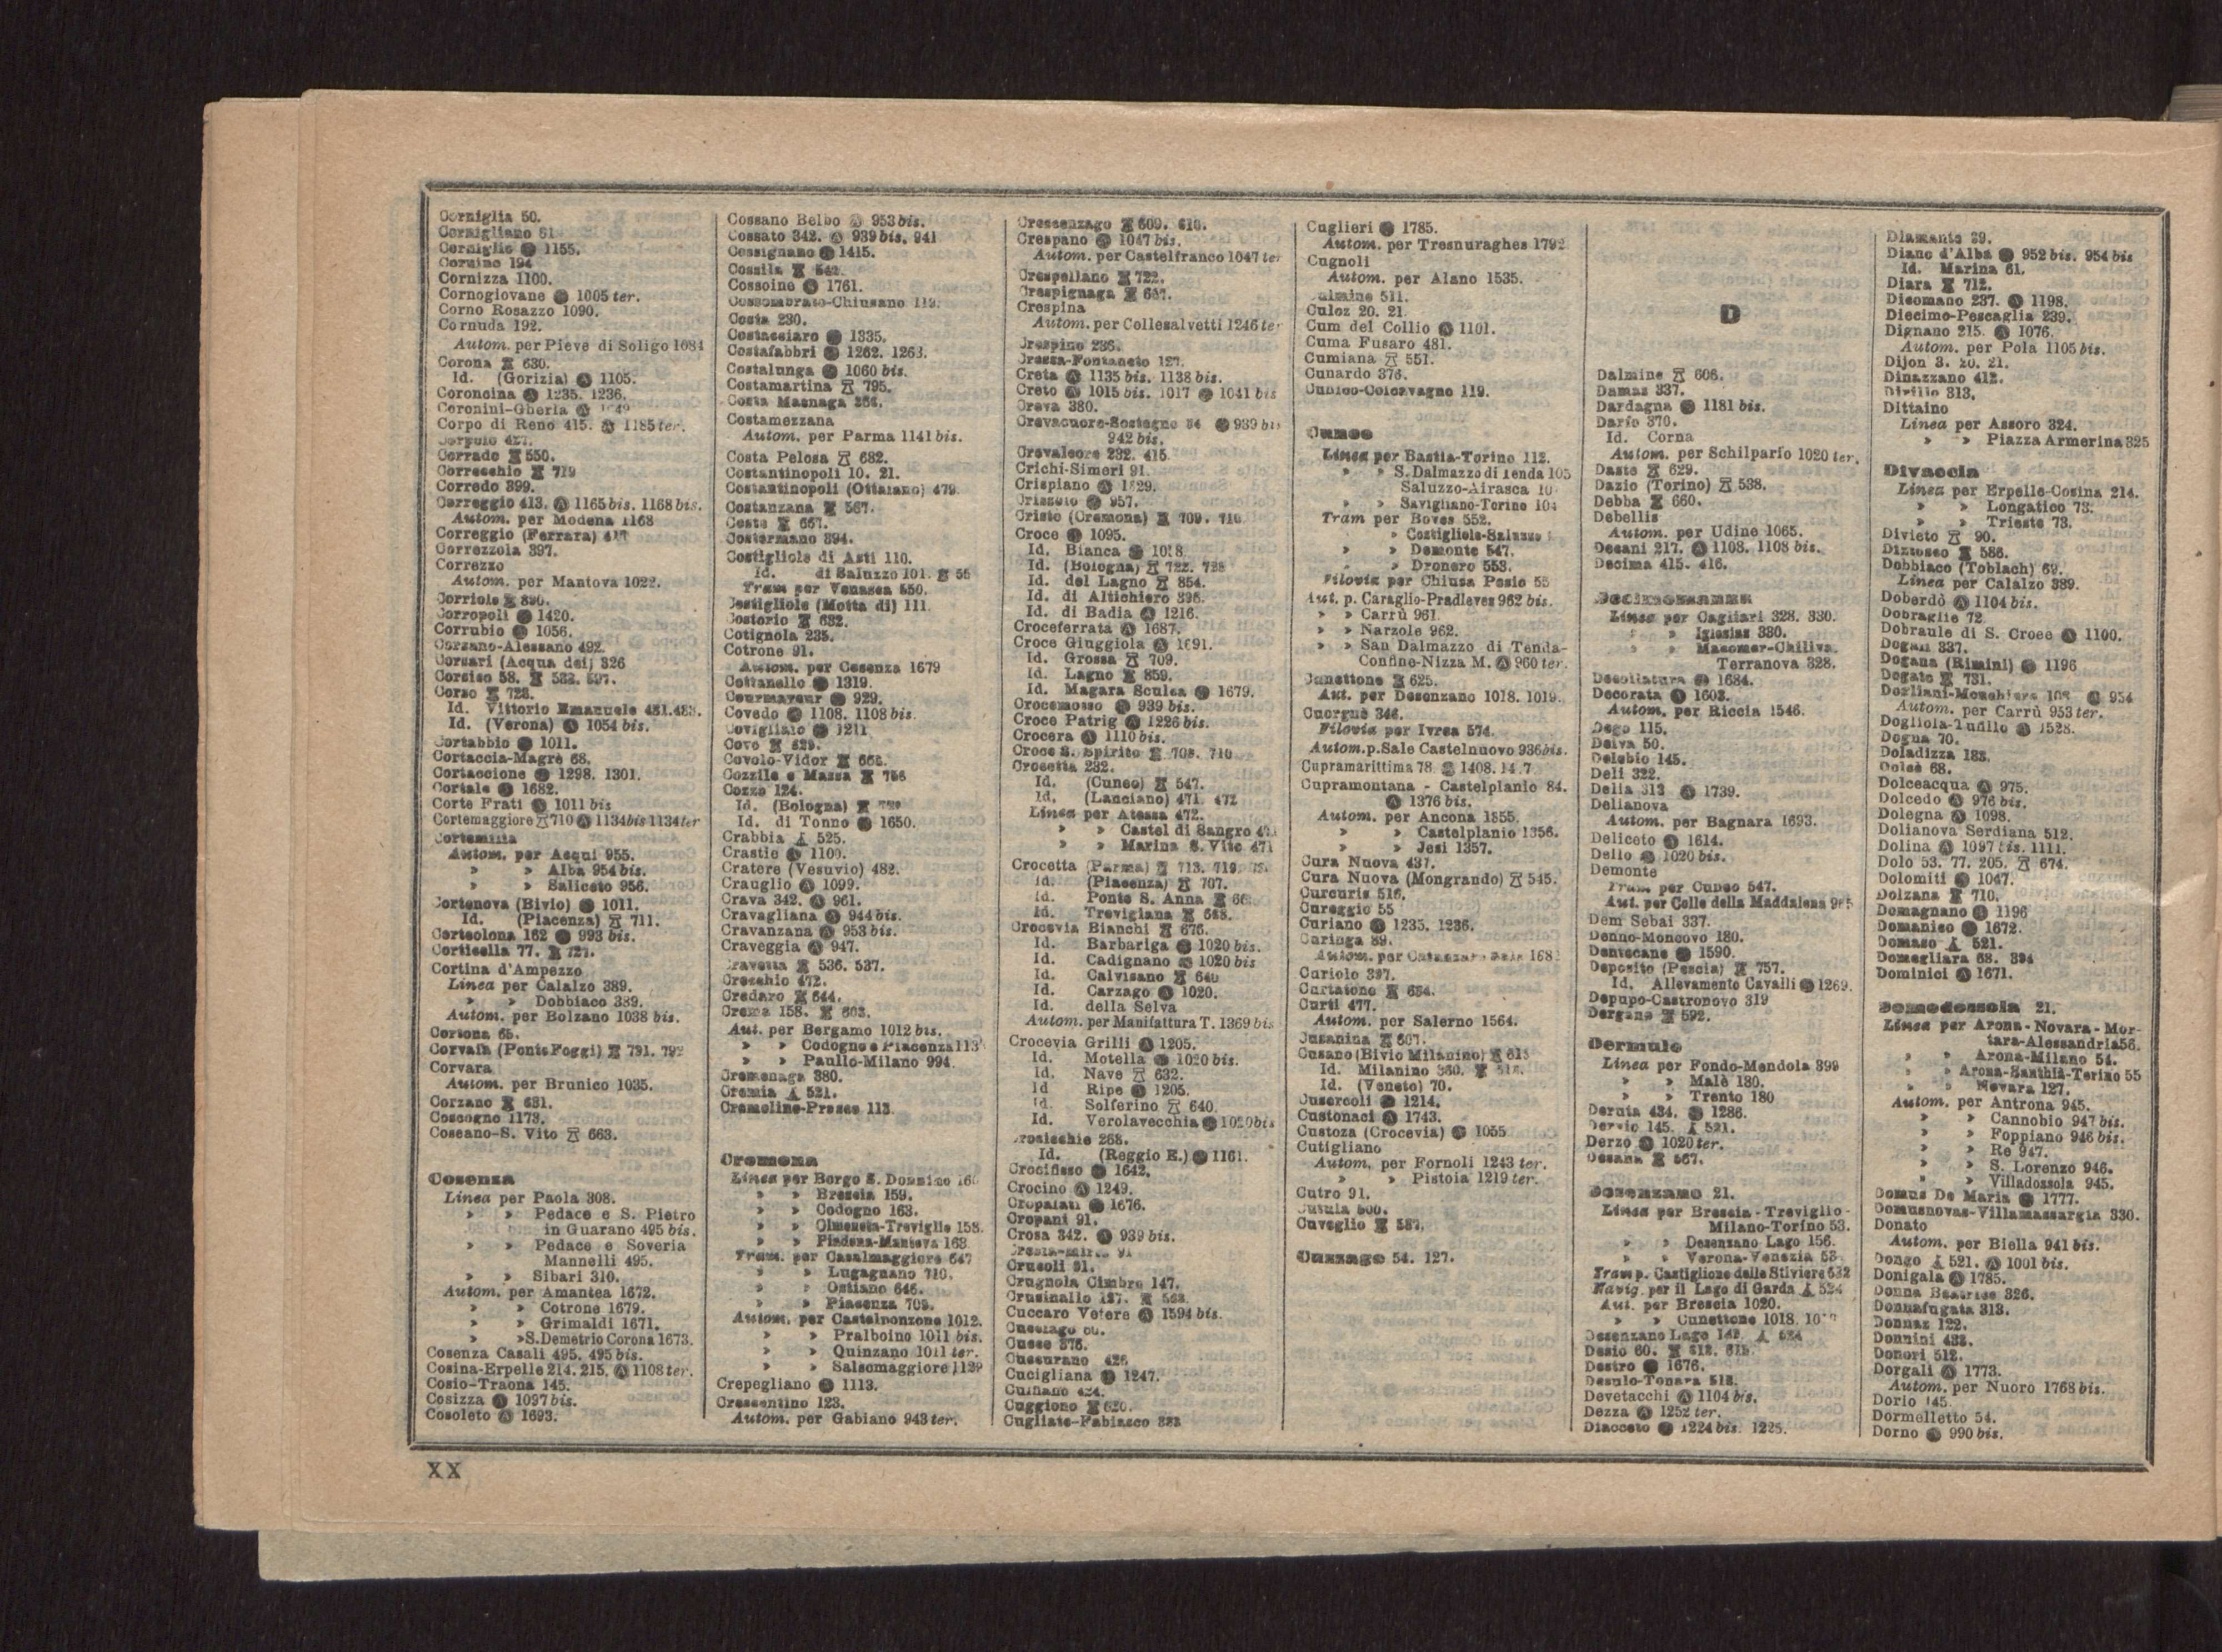 Corniglia 50.
Cornigliano 61
Corniglio Ⓐ 1155.
Cornino 194
Cornizza 1100.
Cornogiovane Ⓐ 1005 ter.
Corno Rosazzo 1090.
Cornuda 192.
Autom. per Pieve di Soligo 1084
Corona 630.
Id. (Gorizia) Ⓐ 1105.
Coroncina Ⓐ 1235. 1236.
Coronini-Gherla Ⓐ
Corpo di Reno 415. Ⓐ 1185 ter.
Corrado 550.
Correcchio 719
Corredo 399.
Correggio 413. Ⓐ 1165 bis. 1168 bis.
Autom. per Modena 1168
Correggio (Ferrara)
Correzzola 397.
Correzzo
Autom. per Mantova 1022.
Corriole
Corropoli Ⓐ 1420.
Corrubio Ⓐ 1056.
Corsano-Alessano 492.
Corsari (Acqua dei) 326
Corsico 58.
Corso 728.
Id. Vittorio Emanuele 481.483.
Id. (Verona) Ⓐ 1054 bis.
Cortabbio Ⓐ 1011.
Cortaccia-Magrè 68.
Cortaccione Ⓐ 1298. 1301.
Cortale Ⓐ 1682.
Corte Frati Ⓐ 1011 bis
Cortemaggiore 710 Ⓐ 1134bis 1134ter
Cortemilia
Autom. per Acqui 955.
» » Alba 954 bis.
» » Saliceto 956.
Cortenova (Bivio) Ⓐ 1011.
Id. (Piacenza) 711.
Corteolona 162 Ⓐ 993 bis.
Corticella 77. 727.
Cortina d'Ampezzo
Linea per Calalzo 389.
» » Dobbiaco 389.
Autom. per Bolzano 1038 bis.
Cortona 65.
Corvaia (Ponte Foggi) 791. 792
Corvara
Autom. per Brunico 1035.
Corzano 631.
Coscogno 1173.
Coseano-S. Vito 663.
Cosenza
Linea per Paola 308.
» » Pedace e S. Pietro
in Guarano 495 bis.
» » Pedace e Soveria
Mannelli 495.
» » Sibari 310.
Autom. per Amantea 1672.
» » Cotrone 1679.
» » Grimaldi 1671.
» » S.Demetrio Corona 1673.
Cosenza Casali 495. 495 bis.
Cosina-Erpelle 214. 215. Ⓐ 1108 ter.
Cosio-Traona 145.
Cosizza Ⓐ 1097 bis.
Cosoleto Ⓐ 1693.
Cossano Belbo Ⓐ 953 bis.
Cossato 342. Ⓐ 939 bis. 941
Cossignano Ⓐ 1415.
Cossila 542.
Cossoine Ⓐ 1761.
Cossombrato-Chiusano 119.
Costa 230.
Costacciaro Ⓐ 1335.
Costafabbri Ⓐ 1262. 1263.
Costalunga Ⓐ 1060 bis.
Costamartina 795.
Costa Masnaga 266.
Costamezzana
Autom. per Parma 1141 bis.
Costa Pelosa 682.
Costantinopoli 10. 21.
Costantinopoli (Ottaiano) 479
Costanzana 567.
Coste 667.
Costermano 394.
Costigliole di Asti 110.
Id. di Saluzzo 101.
Tram per Venasca 550.
Costigliole (Motta di) 111.
Costorio 632.
Cotignola 235.
Cotrone 91.
Autom. per Cosenza 1679
Cottanello Ⓐ 1319.
Courmayeur Ⓐ 929.
Covedo Ⓐ 1108. 1108 bis.
Covigliaio Ⓐ 1211
Covo 629.
Covolo-Vidor 668.
Cozzile e Massa 756
Cozzo 124.
Id. (Bologna)
Id. di Tonno Ⓐ 1650.
Crabbia 525.
Crastie Ⓐ 1100.
Cratere (Vesuvio) 482.
Crauglio Ⓐ 1099.
Crava 342. Ⓐ 961.
Cravagliana Ⓐ 944 bis.
Cravanzana Ⓐ 953 bis.
Craveggia Ⓐ 947.
Cravetta 536. 537.
Crecchio 472.
Credaro 644.
Crema 158. 603.
Aut. per Bergamo 1012 bis.
» » Codogno e Piacenza 113
» » Paullo-Milano 994
Cremenaga 380.
Cremia 521.
Cremolino-Prasco 113
Cremona
Linea per Borgo S. Donnino 16
» » Brescia 159.
» » Codogno 163.
» » Olmeneta-Treviglio 158.
» » Piadena-Mantova 163
Tram. per Casalmaggiore 647
» » Lugagnano 710.
» » Ostiano 646.
» » Piacenza 709.
Autom. per Castelponzone 1012.
» » Pralboino 1011 bis.
» » Quinzano 1011 ter.
» » Salsomaggiore 1129
Crepegliano Ⓐ 1113.
Crescentino 123.
Autom. per Gabiano 943 ter.
Crescenzago 609. 610.
Crespano Ⓐ 1047 bis.
Autom. per Castelfranco 1047 ter
Crespellano 722.
Crespignaga 667.
Crespina
Autom. per Collesalvetti 1246 ter
Crespino 236.
Cressa-Fontaneto 127.
Creta Ⓐ 1135 bis. 1138 bis.
Creto Ⓐ 1015 bis. 1017 Ⓐ 1041 bis
Creva 380.
Crevacuore-Sostegno 34 Ⓐ 939 bis
942 bis.
Crevalcore 232. 415.
Crichi-Simeri 91.
Crispiano Ⓐ 1829.
Crissolo Ⓐ 957.
Cristo (Cremona) 709. 710.
Croce Ⓐ 1095.
Id. Bianca Ⓐ 1018.
Id. (Bologna) 722. 728
Id. del Lagno 854.
Id. di Altichiero 396.
Id. di Badia Ⓐ 1216.
Croceferrata Ⓐ 1687.
Croce Giuggiola Ⓐ 1691.
Id. Grossa 709.
Id. Lagno 859.
Id. Magara Sculca Ⓐ 1679.
Crocemosso Ⓐ 939 bis.
Croce Patrig Ⓐ 1226 bis.
Crocera Ⓐ 1110 bis.
Croce S. Spirito 708. 710
Crocetta 232.
Id. (Cuneo) 547.
Id. (Lanciano) 471. 472
Linea per Atessa 472.
» » Castel di Sangro
» » Marina S. Vito 471
Crocetta (Parma) 713. 719.
Id. (Piacenza) 707.
Id. Ponte S. Anna
Id. Trevigiana 668.
Crocevia Bianchi 676.
Id. Barbariga Ⓐ 1020 bis.
Id. Cadignano Ⓐ 1020 bis
Id. Calvisano 640
Id. Carzago Ⓐ 1020.
Id. della Selva
Autom. per Manifattura T. 1369 bis
Crocevia Grilli Ⓐ 1205.
Id. Motella Ⓐ 1020 bis.
Id. Nave 632.
Id Ripe Ⓐ 1205.
Id. Solferino 640.
Id. Verolavecchia Ⓐ 1020 bis
Crosicchie 268.
Id. (Reggio E.) Ⓐ 1161.
Crocifisso Ⓐ 1642.
Crocino Ⓐ 1249.
Cropalati Ⓐ 1676.
Cropani 91.
Crosa 342. Ⓐ 939 bis.
Crucoli 91.
Crugnola Cimbro 147.
Crusinallo 127. 568.
Cuccaro Vetere Ⓐ 1594 bis.
Cucciago 60.
Cusse 376.
Cuccurano 426
Cucigliana Ⓐ 1247.
Cuggiono 620.
Cugliate-Fabiasco 383
Cuglieri Ⓐ 1785.
Autom. per Tresnuraghes 1792
Cugnoli
Autom. per Alano 1535.
Culmine 511.
Culoz 20. 21
Cum del Collio Ⓐ 1101.
Cuma Fusaro 481.
Cumiana 551.
Cunardo 376.
Cunico-Colcavagno 119.
Cuneo
Linea per Bastia-Torino 112.
» » S.Dalmazzo di Tenda 105
Saluzzo-Airasca 10
» » Savigliano-Torino 104
Tram per Boves 552.
» Costigliole-Saluzzo
» » Demonte 547.
» » Dronero 553.
Filovia per Chiusa Pesio 55
Aut. p. Caraglio-Pradleves 962 bis.
» » Carrù 961.
» » Narzole 962.
» » San Dalmazzo di Tenda-
Confine-Nizza M. Ⓐ 960 ter.
Cunettone 625.
Aut. per Desenzano 1018. 1019.
Cuorgnè 346.
Filovia per Ivrea 574.
Autom.p.Sale Castelnuovo 936 bis.
Cupramarittima 78. Ⓐ 1408.
Cupramontana - Castelplanio 84.
Ⓐ 1376 bis.
Autom. per Ancona 1355.
» » Castelplanio 1356.
» » Jesi 1357.
Cura Nuova 437.
Cura Nuova (Mongrando) 545.
Curcuris 516.
Cureggio 55
Curiano Ⓐ 1235. 1236.
Curinga 89.
Curiolo 397.
Curtatone 654.
Curti 477.
Autom. per Salerno 1564.
Cusanina 607.
Cusano (Bivio Milanino) 613
Id. Milanino 360.
Id. (Veneto) 70.
Cusercoli Ⓐ 1214.
Custonaci Ⓐ 1743.
Custoza (Crocevia) Ⓐ 1055
Cutigliano
Autom. per Fornoli 1243 ter.
» » Pistoia 1219 ter.
Cutro 91.
Cutula 500.
Cuveglio 587.
Cuzzago 54. 127.
D
Dalmine 606.
Damas 337.
Dardagna Ⓐ 1181 bis.
Darfo 370.
Id. Corna
Autom. per Schilpario 1020 ter.
Daste 629.
Dazio (Torino) 538.
Debba 660.
Debellis
Autom. per Udine 1065.
Decani 217. Ⓐ 1108. 1108 bis.
Decima 415. 416.
Decimomannu
Linea per Cagliari 328. 330.
» » Iglesias 330.
» » Macomer-Chiliva
Terranova 328.
Decollatura Ⓐ 1684.
Decorata Ⓐ 1603.
Autom. per Riccia 1546.
Dego 115.
Deiva 50.
Delebio 145.
Deli 322.
Delia 313 Ⓐ 1739.
Delianova
Autom. per Bagnara 1693.
Deliceto Ⓐ 1614.
Dello Ⓐ 1020 bis.
Demonte
Tram per Cuneo 547.
Aut. per Colle della Maddalena
Dem Sebai 337.
Denno-Moncovo 180.
Dentecane Ⓐ 1590.
Deposito (Pescia) 757.
Id. Allevamento Cavalli Ⓐ 1269.
Depupo-Castronovo 319
Dergano 592.
Dermulo
Linea per Fondo-Mendola 399
» » Malè 180.
» » Trento 180
Deruta 434. Ⓐ 1286.
Dervio 145. 521.
Derzo Ⓐ 1020 ter.
Desana 567.
Desenzano 21.
Linea per Brescia - Treviglio -
Milano-Torino 53.
» » Desenzano Lago 156.
» » Verona-Venezia 53
Tram p. Castiglione delle Stiviere 632
Navig. per il Lago di Garda 524
Aut. per Brescia 1020.
» » Cunettone 1018.
Desenzano Lago 149. 524
Desio 60. 612.
Destro Ⓐ 1676.
Desulo-Tonara 513.
Devetacchi Ⓐ 1104 bis.
Dezza Ⓐ 1252 ter.
Diacceto Ⓐ 1224 bis. 1225.
Diamante 89.
Diano d'Alba Ⓐ 952 bis. 954 bis
Id. Marina 61.
Diara 712.
Dicomano 237. Ⓐ 1198.
Diecimo-Pescaglia 239.
Dignano 215. Ⓐ 1076.
Autom. per Pola 1105 bis.
Dijon 3. 20. 21.
Dinazzano 412.
Dirillo 313.
Dittaino
Linea per Assoro 324.
» » Piazza Armerina 325
Divaccia
Linea per Erpelle-Cosina 214.
» » Longatico 73.
» » Trieste 73.
Divieto 90.
Dizzasco 586.
Dobbiaco (Toblach) 69.
Linea per Calalzo 389.
Doberdò Ⓐ 1104 bis.
Dobraglie 72
Dobraule di S. Croce Ⓐ 1100.
Dogali 337.
Dogana (Rimini) Ⓐ 1196
Dogato 731.
Dogliani-Monchiero Ⓐ 954
Autom. per Carrù 953 ter.
Dogliola-Tufillo Ⓐ 1528.
Dogna 70.
Doladizza 183.
Dolcè 68.
Dolceacqua Ⓐ 975.
Dolcedo Ⓐ 976 bis.
Dolegna Ⓐ 1098.
Dolianova Serdiana 512.
Dolina Ⓐ 1097 bis. 1111.
Dolo 53. 77. 205. 674.
Dolomiti Ⓐ 1047.
Dolzana 710.
Domagnano Ⓐ 1196
Domanico Ⓐ 1672.
Domaso 521.
Domegliara 68. 394
Dominici Ⓐ 1671.
Domodossola 21.
Linea per Arona - Novara - Mor-
tara-Alessandria 56.
» » Arona-Milano 54.
» » Arona-Santhià-Torino 55
» » Novara 127.
Autom. per Antrona 945.
» » Cannobio 947 bis.
» » Foppiano 946 bis.
» » Re 947.
» » S. Lorenzo 946.
» » Villadossola 945.
Domus De Maria Ⓐ 1777.
Domusnovas-Villamassargia 330.
Donato
Autom. per Biella 941 bis.
Dongo 521. Ⓐ 1001 bis.
Donigala Ⓐ 1785.
Donna Beatrice 326.
Donnafugata 313.
Donnaz 122.
Donnini 433.
Donori 512.
Dorgali Ⓐ 1773.
Autom. per Nuoro 1768 bis.
Dorio 145.
Dormelletto 54.
Dorno Ⓐ 990 bis.
XX